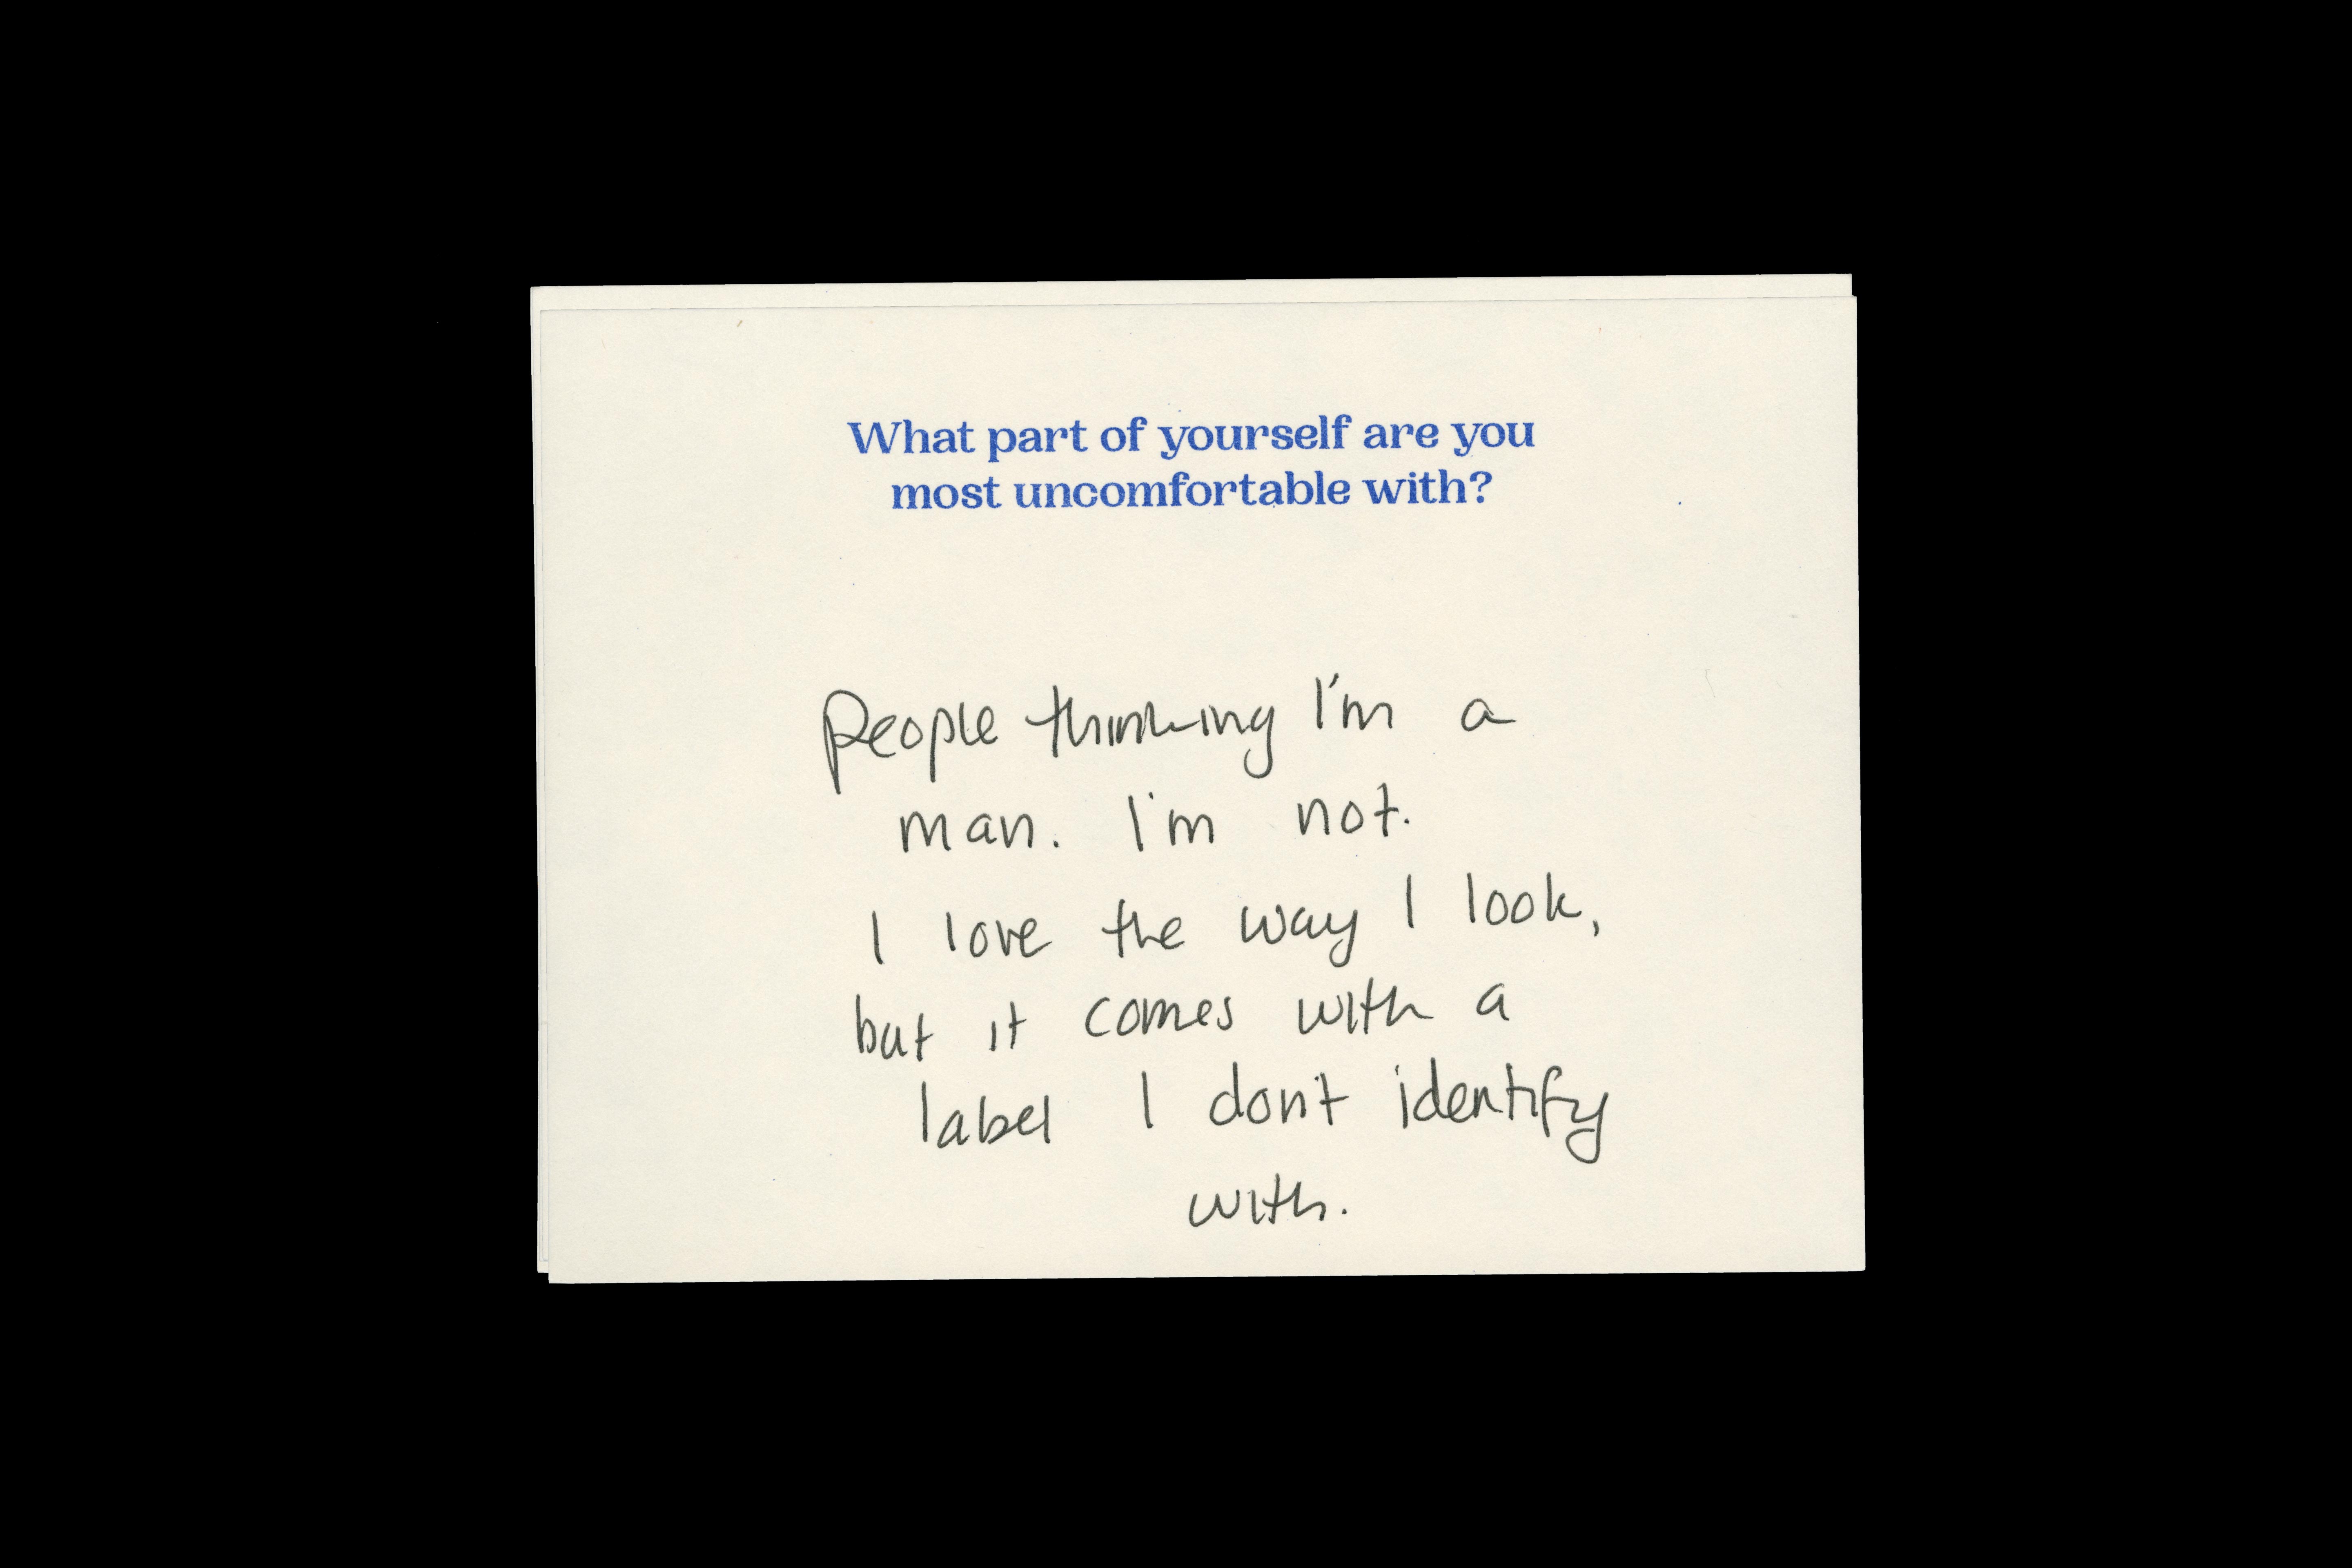 What part of yourself are you
most uncomfortable with?
People thinking I'm a
man. I'm not.
I love the way I look,
but it comes with a
label I don't identify
with.